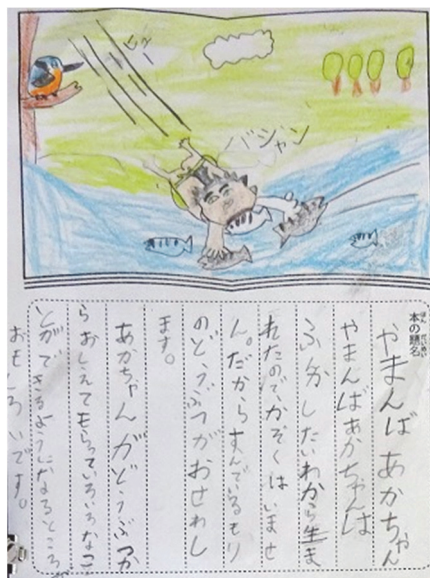 ヒュー
バシャン
本の題名
ほん だいめい
やまんば あかちゃん
やまんばあかちゃんは
ふん火したいわから生ま
れたので、かぞくはいませ
ん。だからすんでいるもり
のどうぶつがおせわし
ます。
あかちゃんがどうぶつか
らおしえてもらっていろいろなこ
とができるようになるところが
おもしろいです。